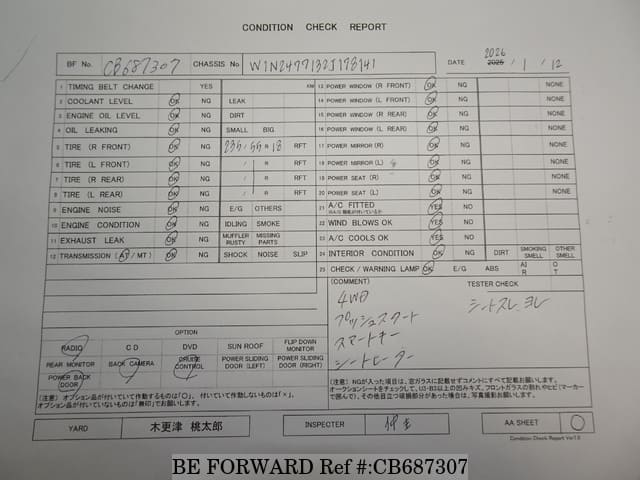 CONDITION CHECK REPORT
BF No. CB687307 CHASSIS No. W1N2477132J178141 DATE 2026 2025 / 1 / 12
1 TIMING BELT CHANGE YES KM
2 COOLANT LEVEL OK NG LEAK
3 ENGINE OIL LEVEL OK NG DIRT
4 OIL LEAKING OK NG SMALL BIG
5 TIRE (R FRONT) OK NG 235/55 R 18 RFT
6 TIRE (L FRONT) OK NG / R RFT
7 TIRE (R REAR) OK NG / R RFT
8 TIRE (L REAR) OK NG / R RFT
9 ENGINE NOISE OK NG E/G OTHERS
10 ENGINE CONDITION OK NG IDLING SMOKE
11 EXHAUST LEAK OK NG MUFFLER RUSTY MISSING PARTS
12 TRANSMISSION (AT/MT) OK NG SHOCK NOISE SLIP
13 POWER WINDOW (R FRONT) OK NG NONE
14 POWER WINDOW (L FRONT) OK NG NONE
15 POWER WINDOW (R REAR) OK NG NONE
16 POWER WINDOW (L REAR) OK NG NONE
17 POWER MIRROR (R) OK NG NONE
18 POWER MIRROR (L) OK NG NONE
19 POWER SEAT (R) OK NG NONE
20 POWER SEAT (L) OK NG NONE
21 A/C FITTED YES NO
22 WIND BLOWS OK YES NO
23 A/C COOLS OK YES NO
24 INTERIOR CONDITION OK NG DIRT SMOKING SMELL OTHER SMELL
25 CHECK / WARNING LAMP OK E/G ABS AIR OT
(COMMENT) TESTER CHECK
4WD シートスレ ヨレ
プッシュスタート
スマートキー
シートヒーター
OPTION
RADIO CD DVD SUN ROOF FLIP DOWN MONITOR
REAR MONITOR BACK CAMERA CRUISE CONTROL POWER SLIDING DOOR (LEFT) POWER SLIDING DOOR (RIGHT)
POWER BACK DOOR
(注意) オプション品が付いていて作動するものは「○」、付いていて作動しないものは「×」、
オプション品が付いていないものは「無印」でお願いします。
(注意) NGが入った項目は、窓ガラスに記載せずコメントにすべて記載し願います。
オークションシートをチェックして、U3・B3以上の凹みキズ、フロントガラスの割れやヒビ(マーカー
で囲んで)、その他目立つ破損部分があった場合は、写真撮影お願いします。
YARD 木更津 桃太郎 INSPECTER AA SHEET ○
Condition Check Report Ver7.0
BE FORWARD Ref #:CB687307